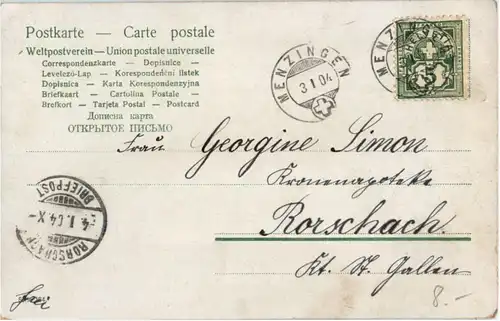 Postkarte — Carte postale
Weltpostverein — Union postale universelle
Correspondenzkarte — Dopisnice —
Levelező-Lap — Korespondenční lístek
Dopisnica — Karta Korespondencyjna
Briefkaart — Cartolina Postale —
Brefkort — Tarjeta Postal — Postcard
Дописна карта
ОТКРЫТОЕ ПИСЬМО
MENZINGEN
3 I 04
MENZINGEN
HELVETIA
5
Frau Georgine Simon
Kronenapoteke
Rorschach.
Kt. St. Gallen
RORSCHACH
4. I. 04 X-
BRIEFPOST
8.-